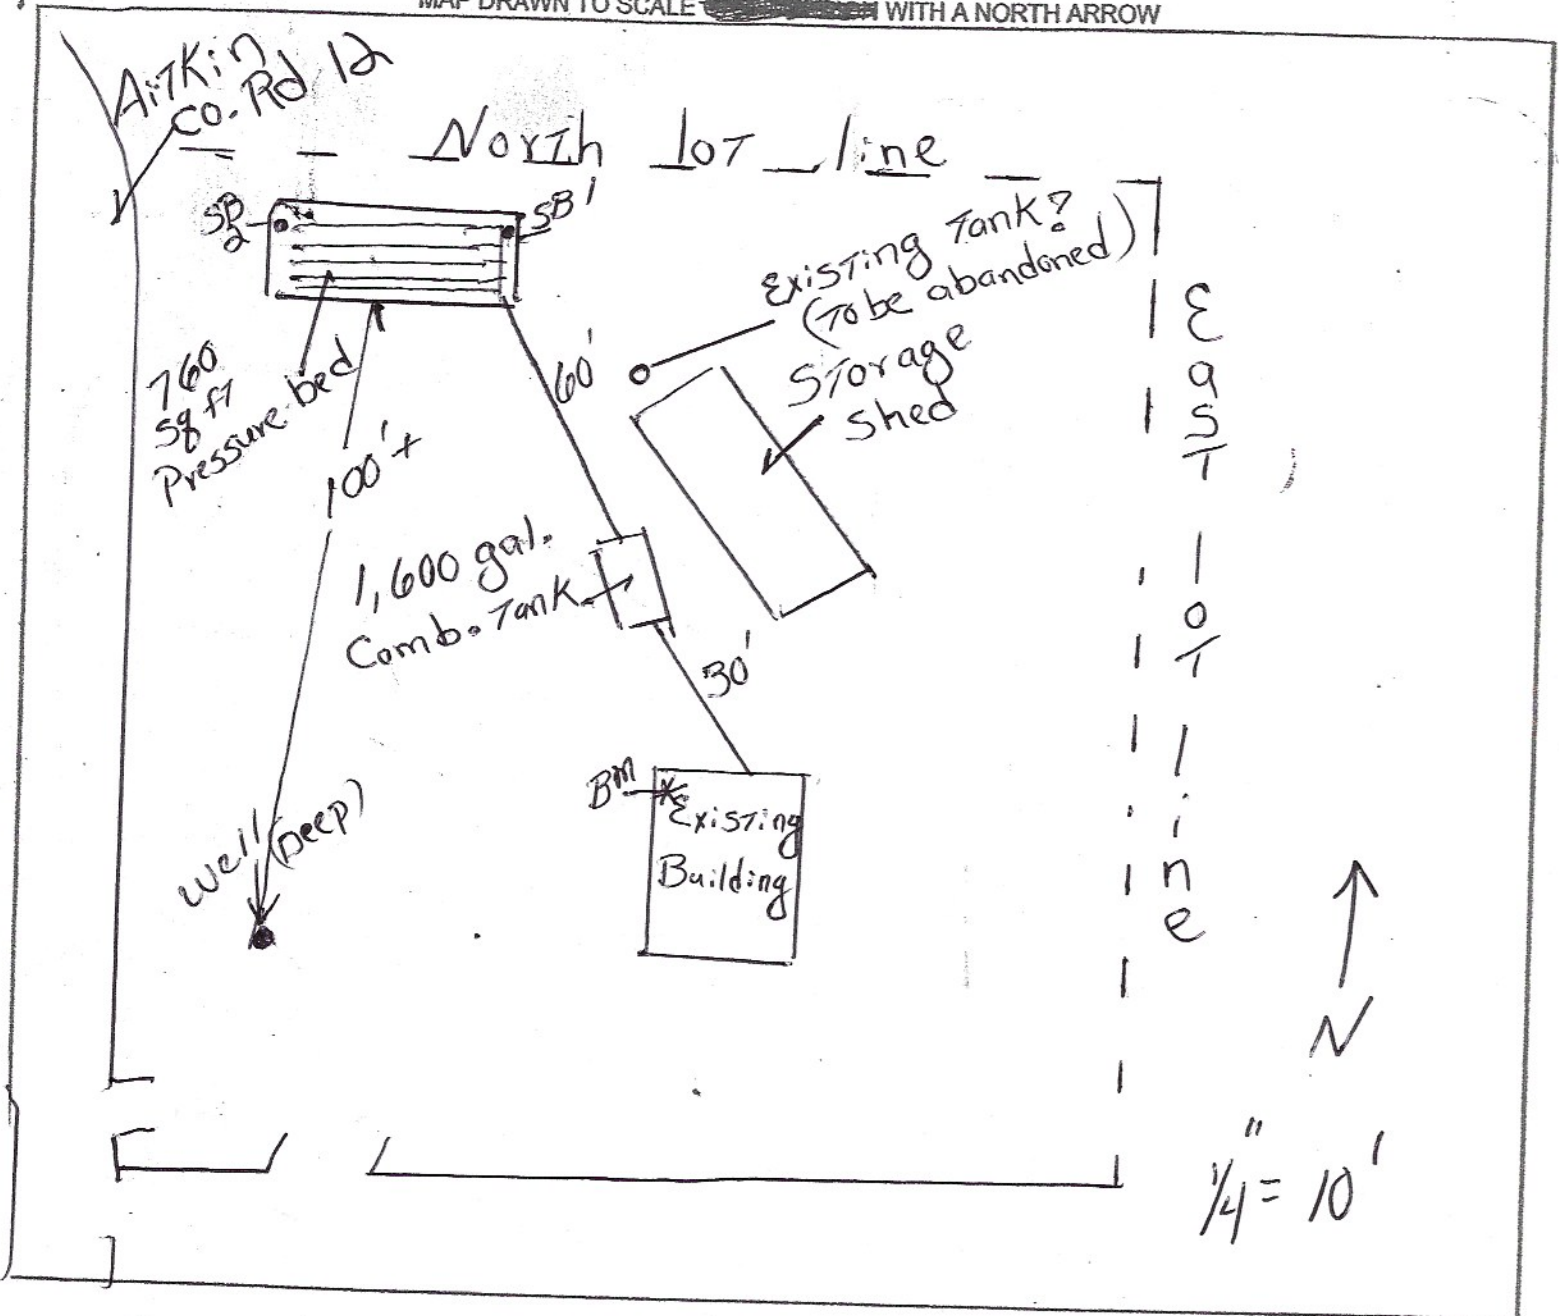 MAP DRAWN TO SCALE WITH A NORTH ARROW
Aitkin
Co. Rd 12
North lot line
SB
2
SB 1
Existing Tank?
(To be abandoned)
Storage
Shed
60'
760
sq ft
Pressure bed
100'+
1,600 gal.
Comb. Tank
30'
East lot line
BM
Existing
Building
Well (Deep)
N
1/4" = 10'